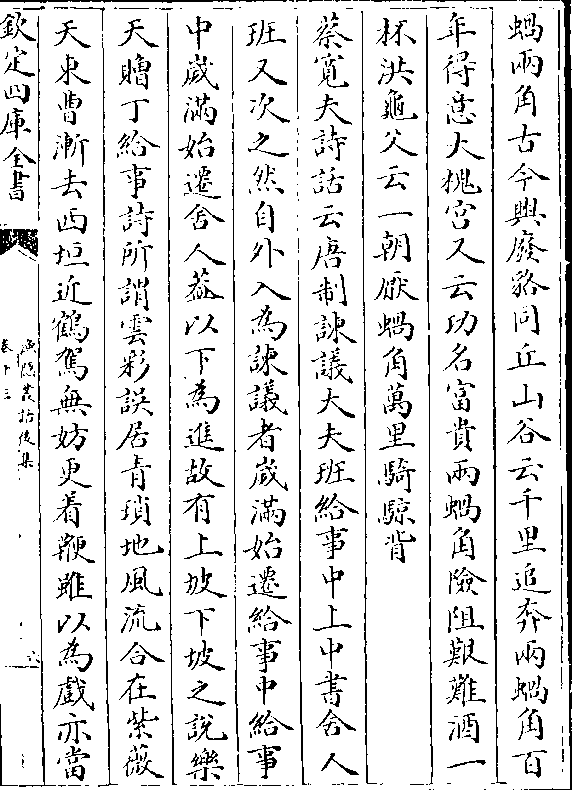 蝸兩角古今興廢貉同丘山谷云千里追奔兩蝸角百
年得意大槐宫又云功名富貴兩蝸角險阻艱難酒一
杯洪龜父云一朝厭蝸角萬里騎鯨背
蔡寛夫詩話云唐制諫議大夫班給事中上中書舍人
班又次之然自外入為諫議者嵗滿始遷給事中給事
中嵗滿始遷舍人葢以下為進故有上坡下坡之説樂
天贈丁給事詩所謂雲彩誤居青瑣地風流合在紫薇
天東曹漸去西垣近鶴駕無妨更着鞭雖以為戲亦當
欽定四庫全書
漁隠叢話後集
卷十三
六